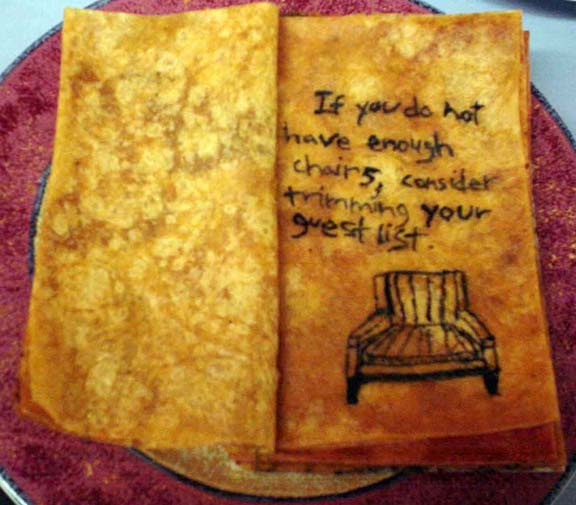 If you do not
have enough
chairs, consider
trimming your
guest list.